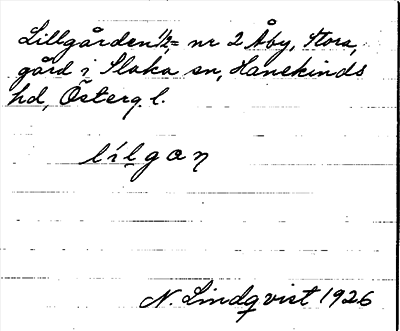 Lillgården 1/2 = nr 2 Åby, Stora,
gård i Slaka sn, Hanekinds
hd, Österg. l.
lílgaɳ
N. Lindqvist 1926